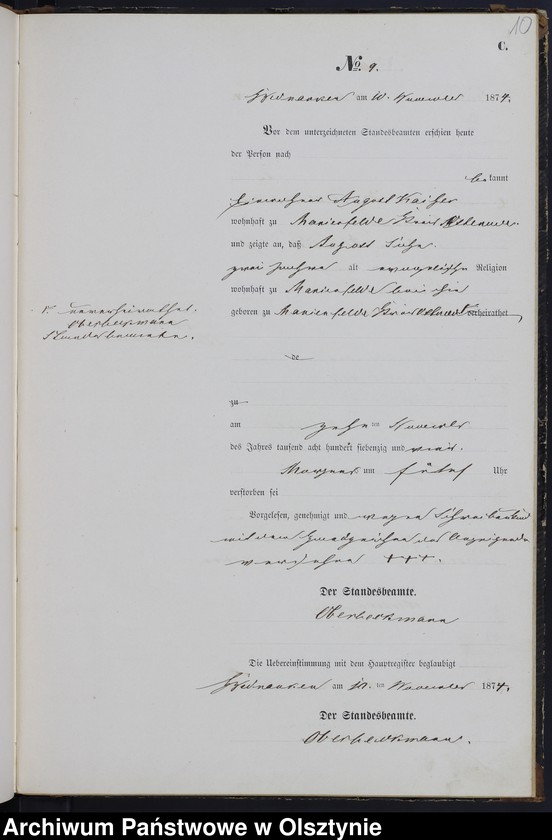 10
C.
No. 9.
am 10. November 1874.
Vor dem unterzeichneten Standesbeamten erschien heute
der Person nach
bekannt
Einwohner August Kaiser
wohnhaft zu Marienfelde Kreis Osterode
und zeigte an, daß August Sohn
zwei Jahre alt evangelische Religion
wohnhaft zu Marienfelde bei ihm
geboren zu Marienfelde Kreis Osterode verheirathet
r. unverheirathet.
Oberbeckmann
Standesbeamte.
de
zu
am zehn ten November
des Jahres tausend acht hundert siebenzig und vier
Morgens um fünf Uhr
verstorben sei
Vorgelesen, genehmigt und wegen
mit dem Handzeichen des Anzeigenden
versehen +++.
Der Standesbeamte.
Oberbeckmann
Die Uebereinstimmung mit dem Hauptregister beglaubigt
am 10. ten November 1874.
Der Standesbeamte.
Oberbeckmann.
Archiwum Państwowe w Olsztynie